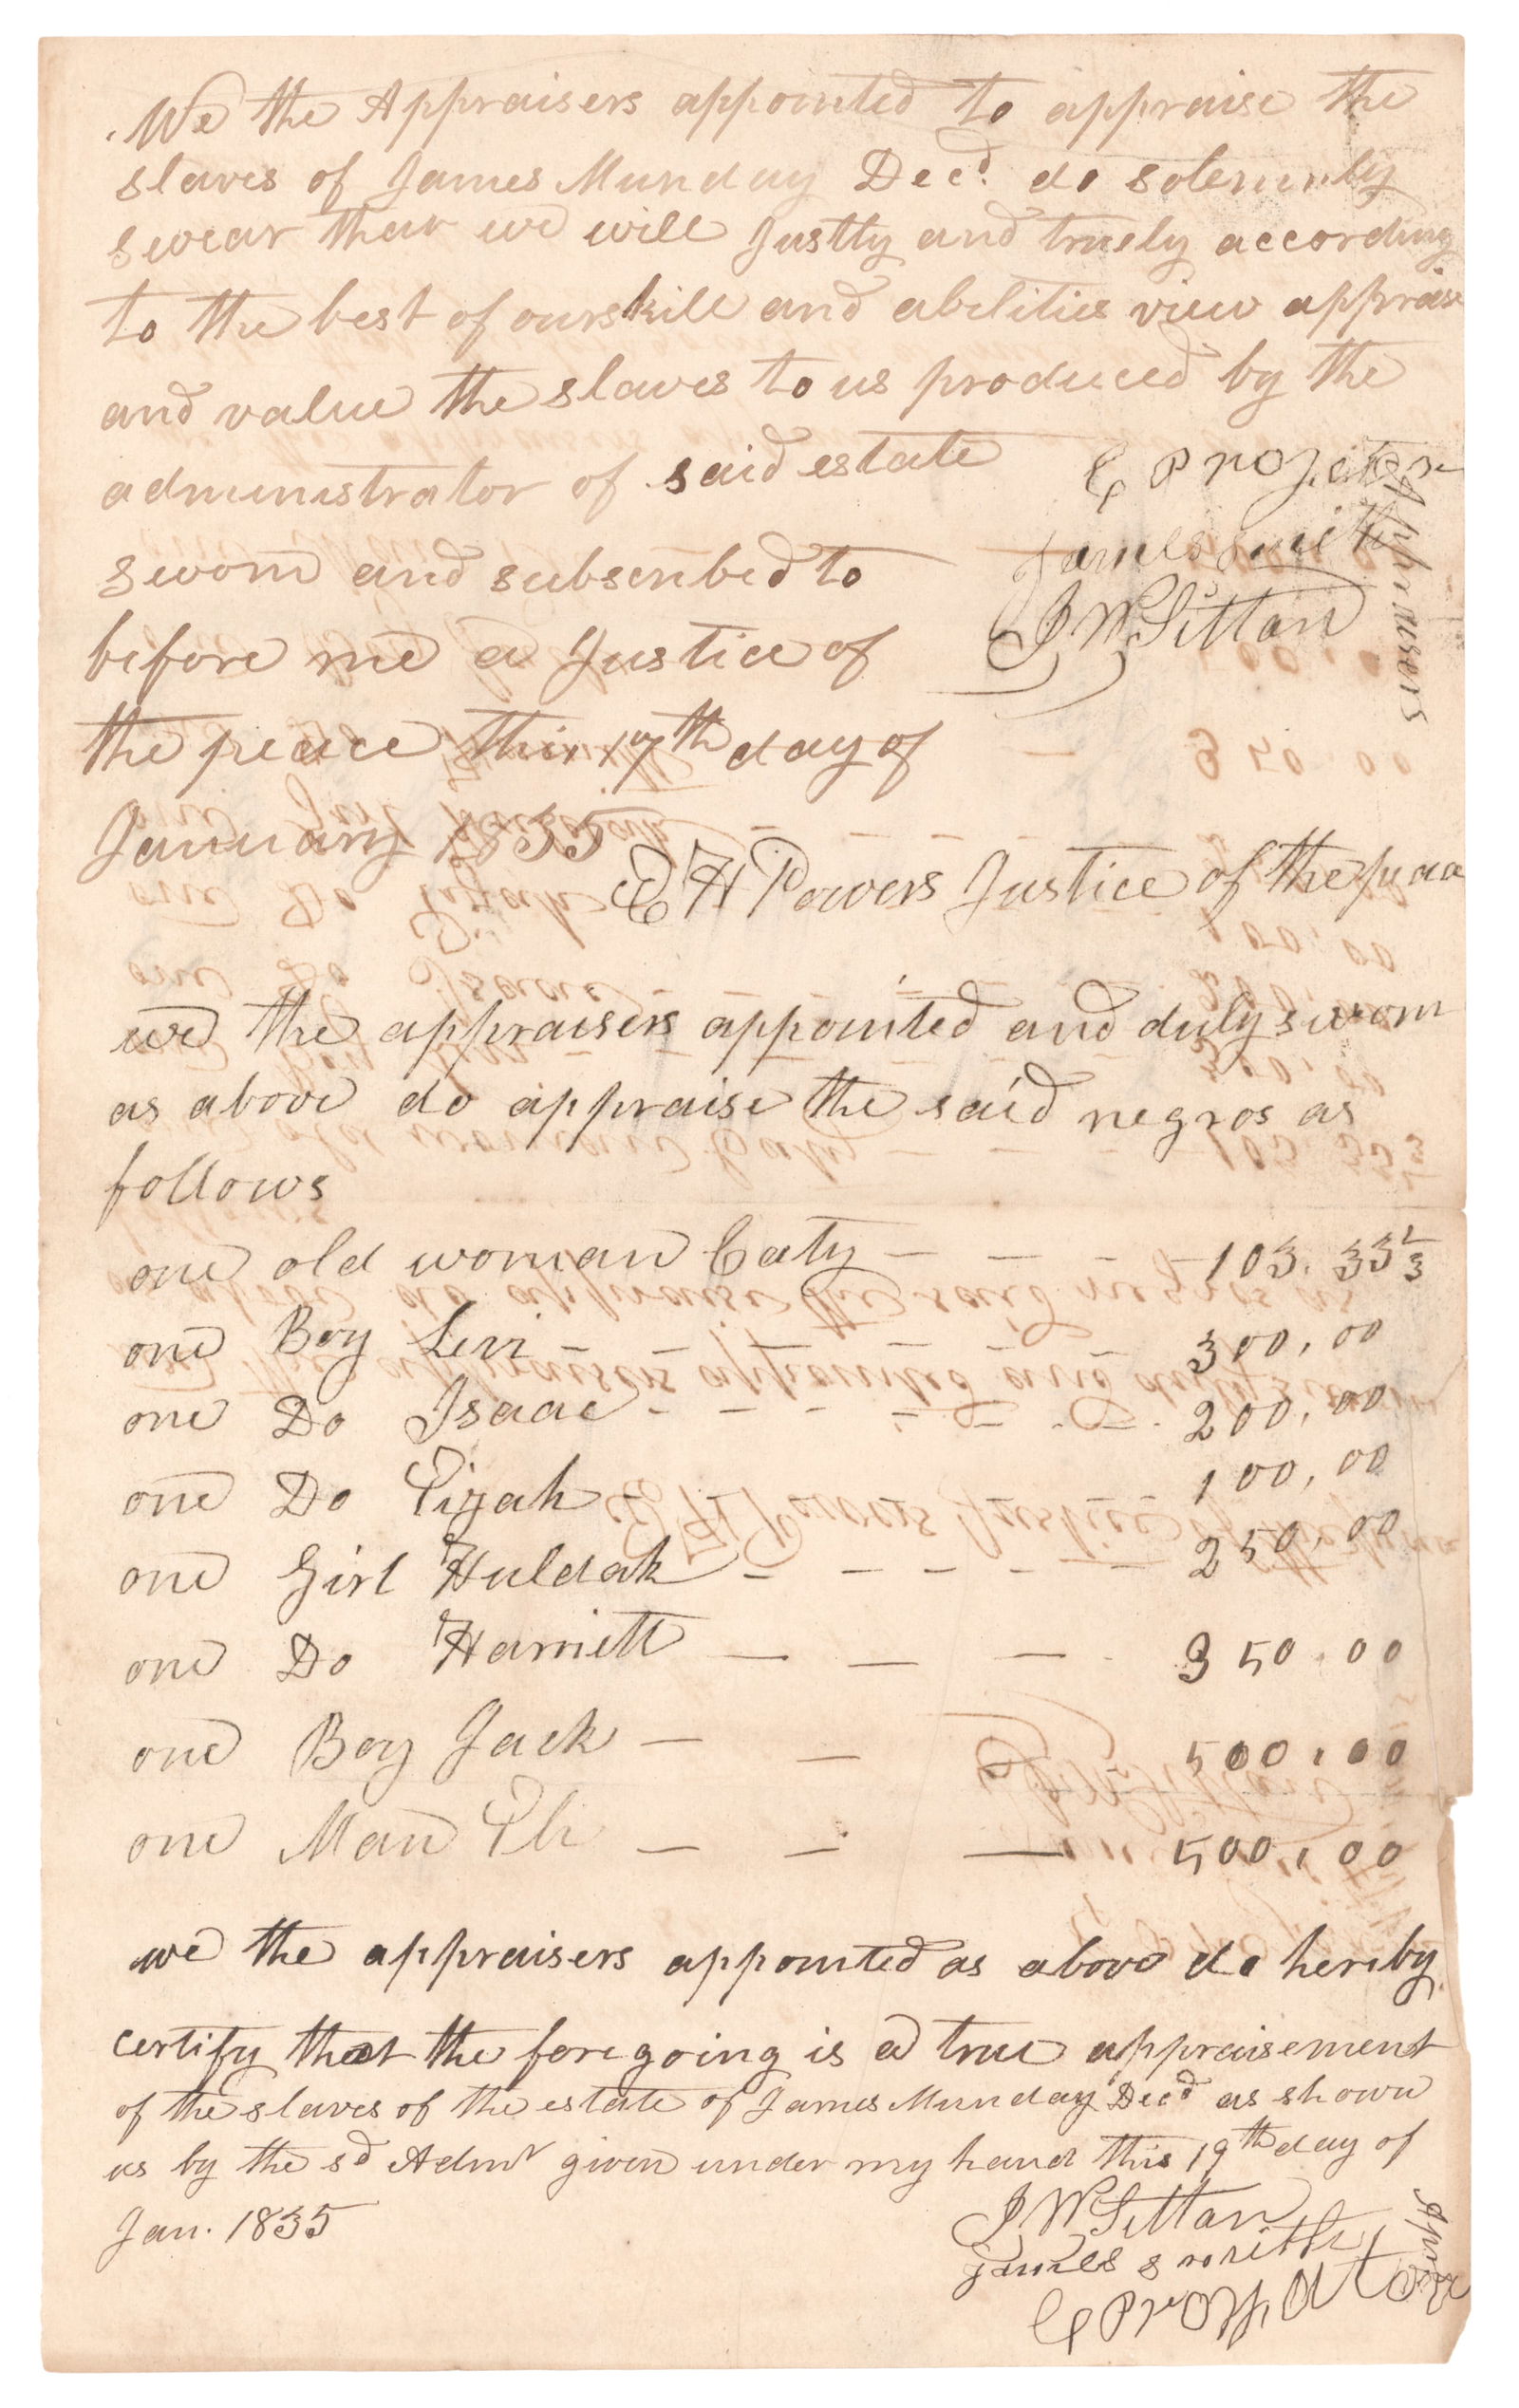 We the Appraisers appointed to appraise the
slaves of James Munday Decd. do solemnly
swear that we will Justly and truely according
to the best of our skill and abilities view appraise
and value the slaves to us produced by the
administrator of said estate
James Smith
J W Sittan
Appraisers
sworn and subscribed to
before me a Justice of
the peace this 17th day of
January 1835
E H Powers Justice of the peace
we the appraisers appointed and duly sworn
as above do appraise the said negros as
follows
one old woman Caty — — — 103.33 1/3
one Boy Levi - - - - - - 300,00
one Do Isaac - - - - - - 200,00
one Do Eigah - - - - - - 100,00
one Girl Huldah - - - - - 250 00
one Do Harriett — — — 350.00
one Boy Jack — — — 500,00
one Man Eli — — — 500,00
we the appraisers appointed as above do hereby
certify that the foregoing is a true appraisement
of the slaves of the estate of James Munday Decd as shown
us by the sd Admr given under my hand this 19th day of
Jan. 1835
J W Sittan
James Smith